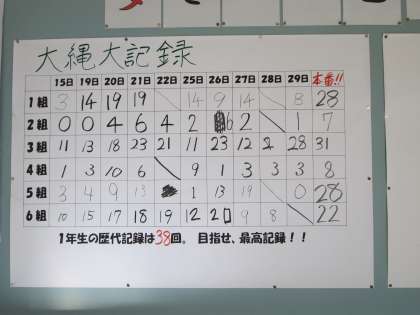 大縄大記録
15日 19日 20日 21日 22日 25日 26日 27日 28日 29日 本番!!
1組 3 14 19 19 14 9 14 8 28
2組 0 0 4 6 4 2 6 2 1 7
3組 11 13 18 23 21 11 23 12 2 28 31
4組 1 3 10 6 9 1 3 3 3 8
5組 3 4 9 13 1 13 19 0 28
6組 10 15 17 18 19 12 20 9 8 22
1年生の歴代記録は38回。 目指せ、最高記録!!